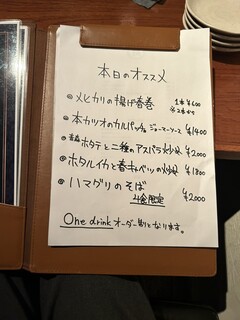 本日のオススメ
◎メヒカリの揚げ春巻 1本 ¥600
※2本から
◎本カツオのカルパッチョ ジョーマーソース ¥1400
◎青森ホタテと二種のアスパラ炒め ¥2000
◎ホタルイカと春キャベツの炒め ¥1800
◎ハマグリのそば ¥2000
4食限定
One drink オーダー制となります。